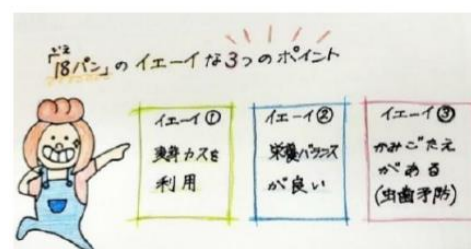 「18パン」のイエーイな3つのポイント
イエーイ①
カスを
利用
イエーイ②
栄養バランス
が良い
イエーイ③
かみごたえ
がある
(虫歯予防)